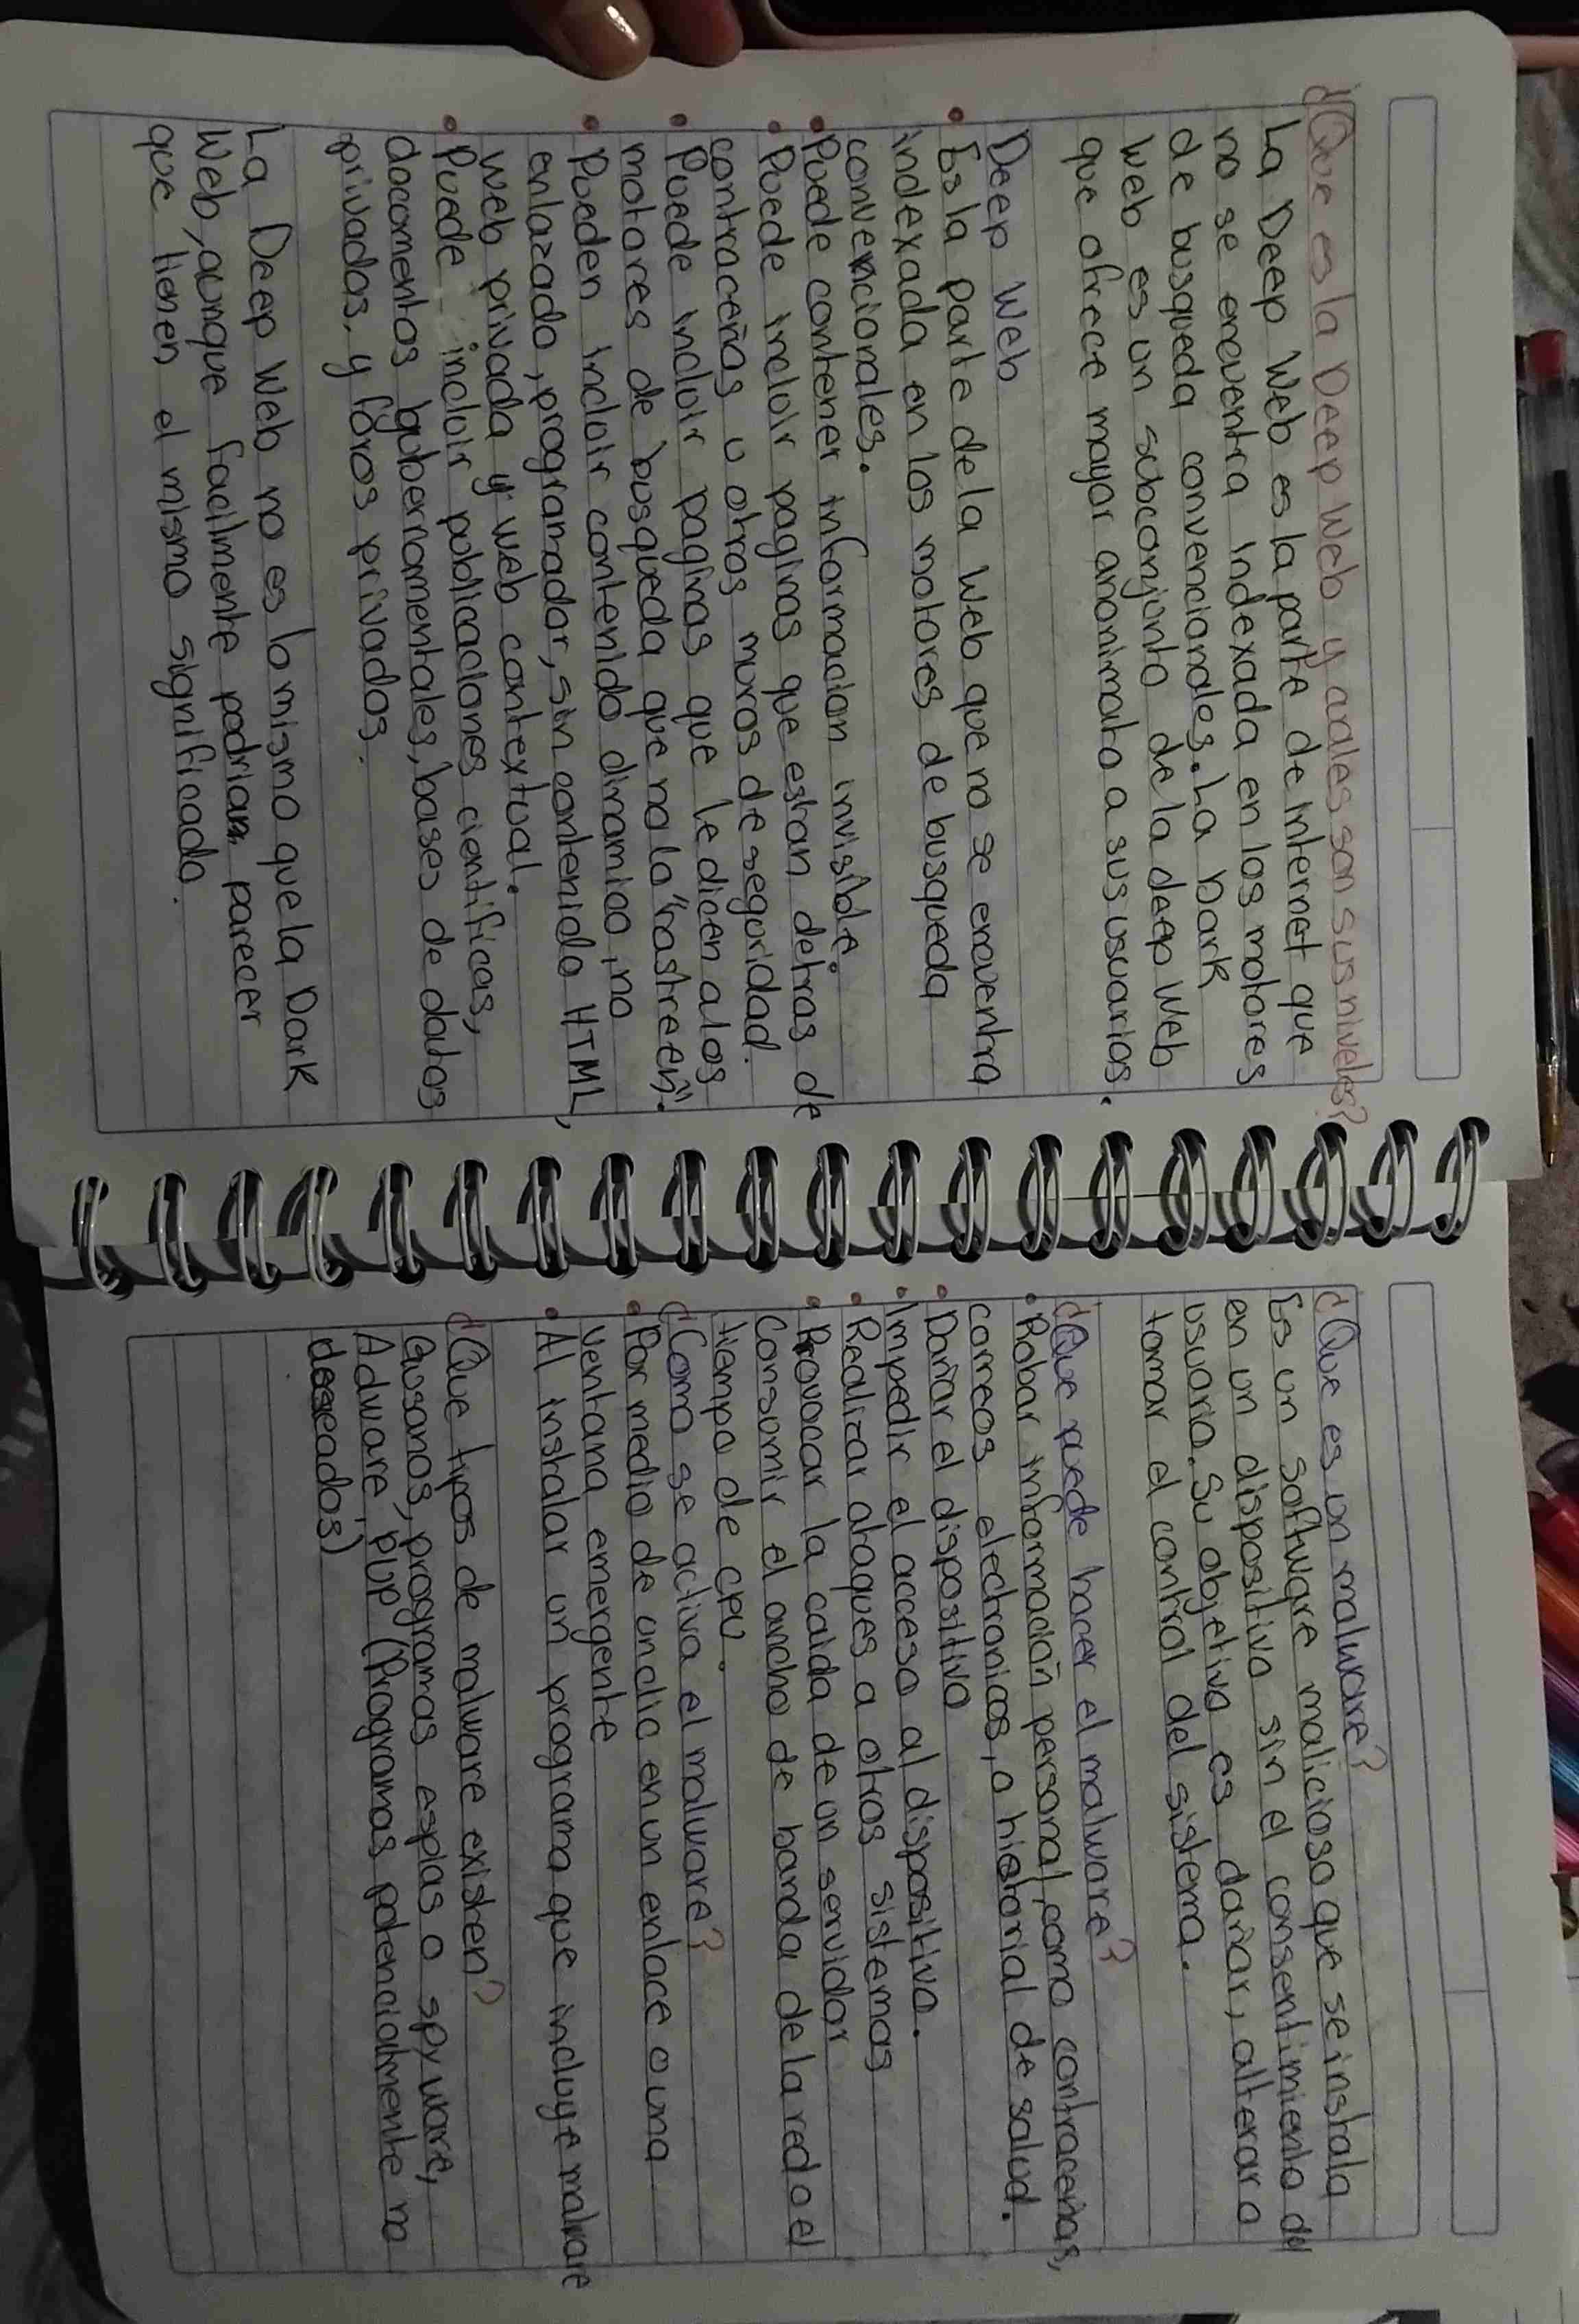 ¿Que es la Deep Web y cuales son sus niveles?
La Deep Web es la parte de internet que
no se encuentra indexada en los motores
de busqueda convencionales. La Dark
Web es un subconjunto de la deep web
que ofrece mayor anonimato a sus usuarios.
Deep Web
• Es la parte de la web que no se encuentra
indexada en los motores de busqueda
convencionales.
• Puede contener informacion invisible.
• Puede incluir paginas que estan detras de
contraceñas u otros muros de seguridad.
• Puede incluir paginas que le dicen a los
motores de busqueda que no la "rastreen".
• Pueden incluir contenido dinamico, no
enlazado, programador, sin contenido HTML,
web privada y web contextual.
• Puede incluir publicaciones cientificas,
documentos gubernamentales, bases de datos
privados, y foros privados.
La Deep Web no es lo mismo que la Dark
Web, aunque facilmente podrian parecer
que tienen el mismo significado.
¿Que es un malware?
Es un software malicioso que se instala
en un dispositivo sin el consentimiento del
usuario. Su objetivo es dañar, alterar o
tomar el control del sistema.
¿Que puede hacer el malware?
• Robar información personal, como contraceñas,
correos electronicos, o historial de salud.
• Dañar el dispositivo
• Impedir el acceso al dispositivo.
• Realizar ataques a otros sistemas
• Provocar la caida de un servidor
Consumir el ancho de banda de la red o el
tiempo de CPU.
¿Como se activa el malware?
• Por medio de un clic en un enlace o una
ventana emergente
• Al instalar un programa que incluye malware
¿Que tipos de malware existen?
Gusanos, programas espias o spyware,
Adware, PUP (Programas potencialmente no
deseados)